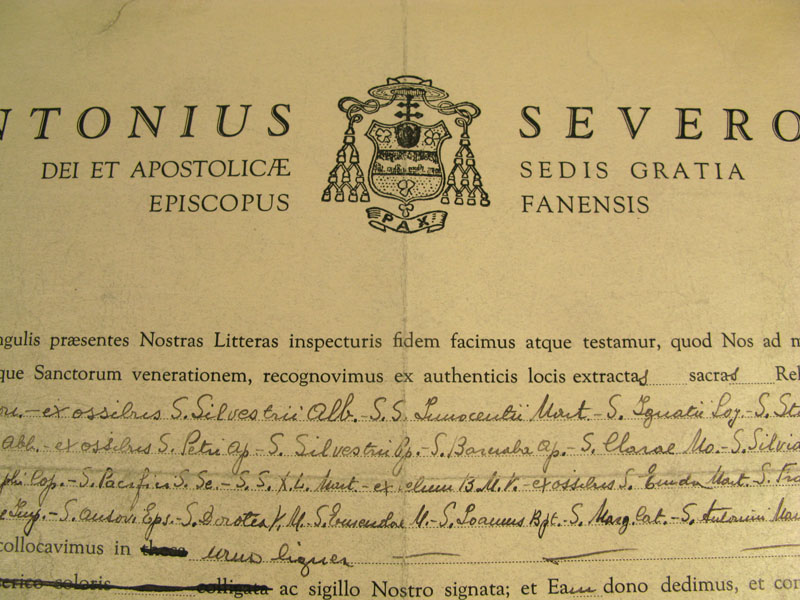 NTONIUS SEVERO
DEI ET APOSTOLICÆ SEDIS GRATIA
EPISCOPUS FANENSIS
PAX
ngulis præsentes Nostras Litteras inspecturis fidem facimus atque testamur, quod Nos ad m
que Sanctorum venerationem, recognovimus ex authenticis locis extractas sacras Rel
ex ossibus S. Silvestrii Abb. - S.S. Innocentii Mart - S. Ignatii Loy. - S. Ste
Abb. - ex ossibus S. Petri Ap - S. Silvestrii Pp. - S. Barnaba Ap. - S. Clarae - S. Silvia
Cop. - S. Pacifici S. Se. - S. S. XL Mart - ex B. M. V. - ex ossibus S. Mart. S. Fra
Imp. - S. Ansovi Eps. - S. Dorotea V. M. - S. M. - S. Joannis Bpt. - S. Marg. Cat. - S. Antonini Mar
collocavimus in urna lignea
serico coloris colligata ac sigillo Nostro signata; et Eam dono dedimus, et con